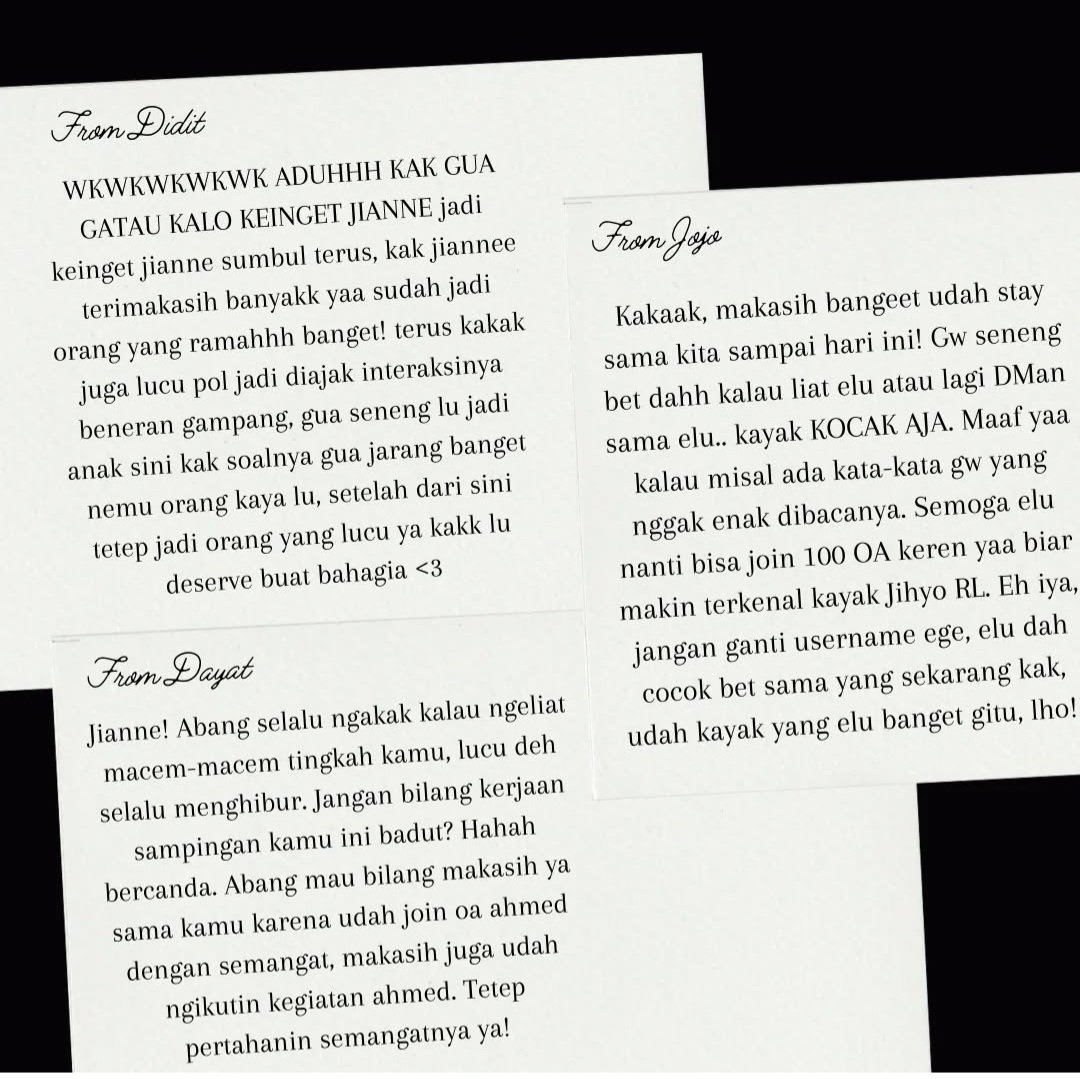 From Didit
WKWKWKWKWK ADUHHH KAK GUA
GATAU KALO KEINGET JIANNE jadi
keinget jianne sumbul terus, kak jiannee
terimakasih banyakk yaa sudah jadi
orang yang ramahhh banget! terus kakak
juga lucu pol jadi diajak interaksinya
beneran gampang, gua seneng lu jadi
anak sini kak soalnya gua jarang banget
nemu orang kaya lu, setelah dari sini
tetep jadi orang yang lucu ya kakk lu
deserve buat bahagia <3
From Jojo
Kakaak, makasih bangeet udah stay
sama kita sampai hari ini! Gw seneng
bet dahh kalau liat elu atau lagi DMan
sama elu.. kayak KOCAK AJA. Maaf yaa
kalau misal ada kata-kata gw yang
nggak enak dibacanya. Semoga elu
nanti bisa join 100 OA keren yaa biar
makin terkenal kayak Jihyo RL. Eh iya,
jangan ganti username ege, elu dah
cocok bet sama yang sekarang kak,
udah kayak yang elu banget gitu, lho!
From Dayat
Jianne! Abang selalu ngakak kalau ngeliat
macem-macem tingkah kamu, lucu deh
selalu menghibur. Jangan bilang kerjaan
sampingan kamu ini badut? Hahah
bercanda. Abang mau bilang makasih ya
sama kamu karena udah join oa ahmed
dengan semangat, makasih juga udah
ngikutin kegiatan ahmed. Tetep
pertahanin semangatnya ya!